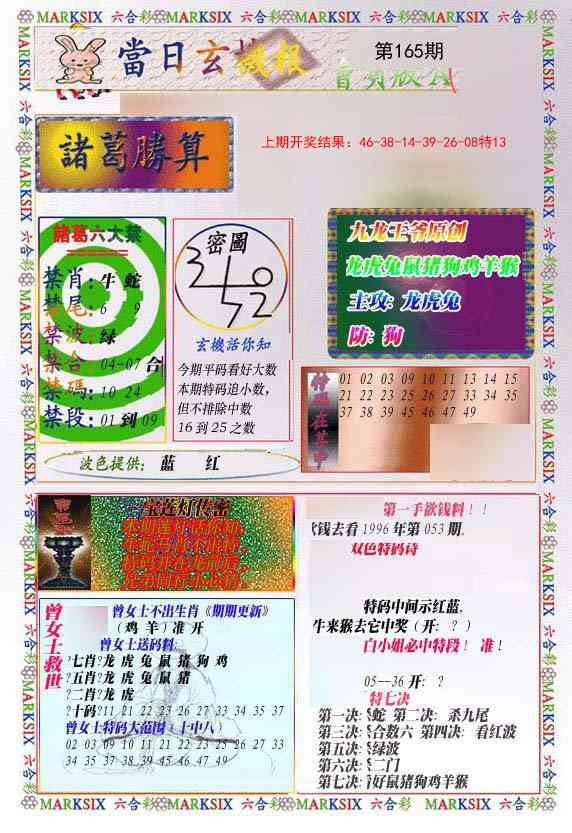 MARKSIX 六合彩 MARKSIX 六合彩 MARKSIX 六合彩 MARKSIX 六合彩
當日玄機報
第165期
諸葛勝算
上期开奖结果：46-38-14-39-26-08特13
諸葛六大禁
禁肖：牛 蛇
禁尾：6 9
禁波：绿
禁合：04-07 合
禁碼：10 24
禁段：01 到 09
密圖
玄機話你知
今期平码看好大数
本期特码追小数，
但不排除中数
16 到 25 之数
九龙王爷原创
龙虎兔鼠猪狗鸡羊猴
主攻：龙虎兔
防：狗
01 02 03 09 10 11 13 14 15
21 22 23 25 26 27 33 34 35
37 38 39 45 46 47 49
波色提供： 蓝 红
宝莲灯传密
第一手欲钱料！！
欠钱去看 1996 年第 053 期，
双色特码诗
特码中间示红蓝，
牛来猴去它中奖（开：？）
白小姐必中特段！ 准！
05--36 开：？
特七决
第一决：蛇 第二决： 杀九尾
第三决：合数六 第四决：看红波
第五决：绿波
第六决：二门
第七决：好鼠猪狗鸡羊猴
曾女士救世
曾女士不出生肖《期期更新》
（鸡 羊）准 开
曾女士送码料：
?七肖?龙 虎 兔 鼠 猪 狗 鸡
?五肖?龙 虎 兔 鼠 猪
?二肖?龙 虎
?十码?11 21 22 23 26 27 33 34 35 37
曾女士特码大范围（十中八）
02 03 09 10 11 21 22 23 25 26 27 33
34 35 37 38 39 45 46 47 49
MARKSIX 六合彩 MARKSIX 六合彩 MARKSIX 六合彩 MARKSIX 六合彩